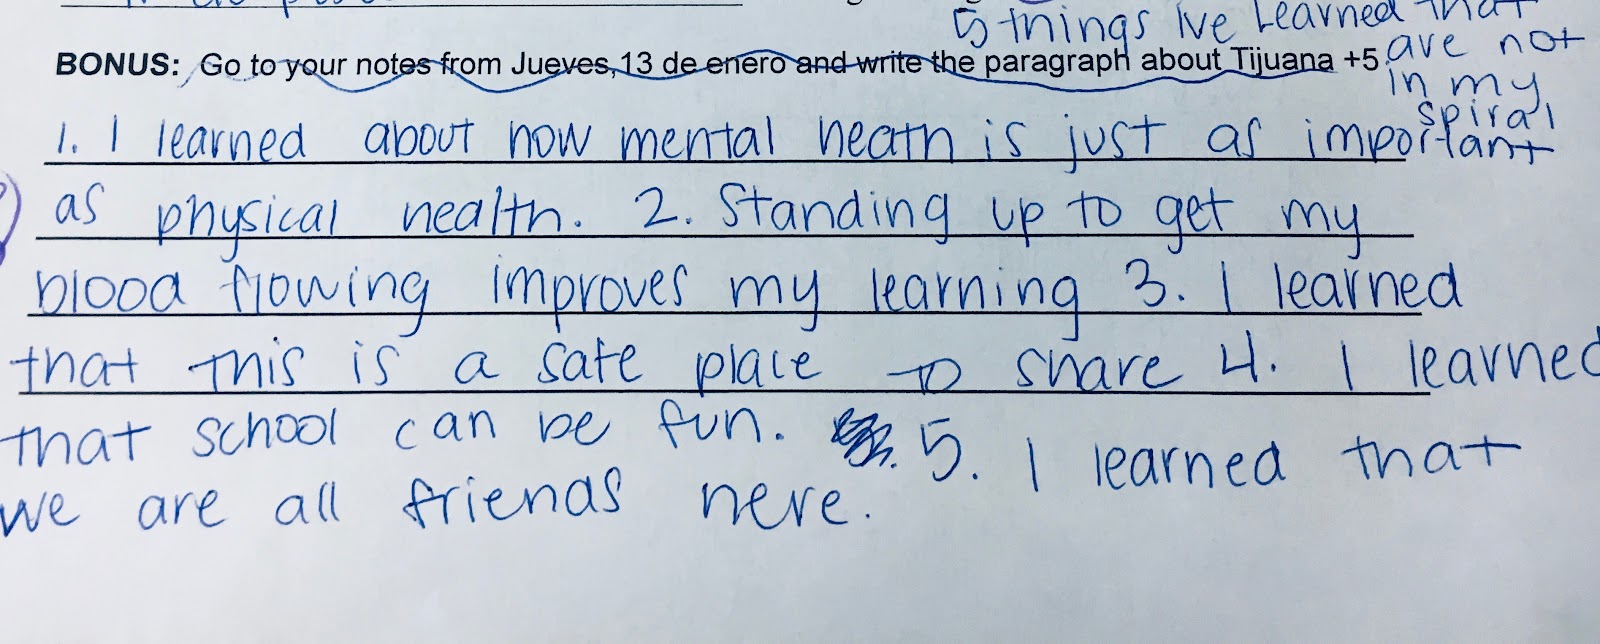 5 things Ive Learned that
are not
in my
spiral
BONUS: Go to your notes from Jueves, 13 de enero and write the paragraph about Tijuana +5
1. I learned about how mental heath is just as important
as physical health. 2. Standing up to get my
blood flowing improves my learning 3. I learned
that this is a safe place to share 4. I learned
that school can be fun. 5. I learned that
we are all friends here.